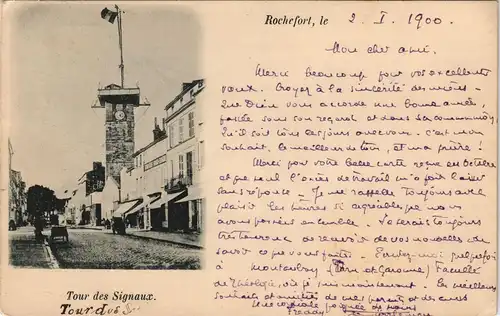 Rochefort, le 2. I. 1900.
Mon cher ami.
Merci beaucoup pour vos excellents
vœux. Croyez à la sincérité des miens.
Que Dieu vous accorde une bonne année,
passée sous son regard et dans sa communion,
Qu'il soit tous les jours avec vous. c'est mon
souhait, le meilleur de tous, et ma prière!
Merci pour votre belle carte reçue en Octobre
et que seul l'excès de travail m'a fait laisser
sans réponse. Je me rappelle toujours avec
plaisir les heures si agréables que nous
avons passées ensemble. Je serais toujours
très heureux de recevoir de vos nouvelles, de
savoir ce que vous faites. Ecrivez-moi quelquefois
à Montauban (Tarn et Garonne) Faculté
de Théologie, où je suis maintenant. Les meilleurs
souhaits et amitiés de mes parents et des
Une cordiale poignée de mains
Freddy
Tour des Signaux.
Tour des S